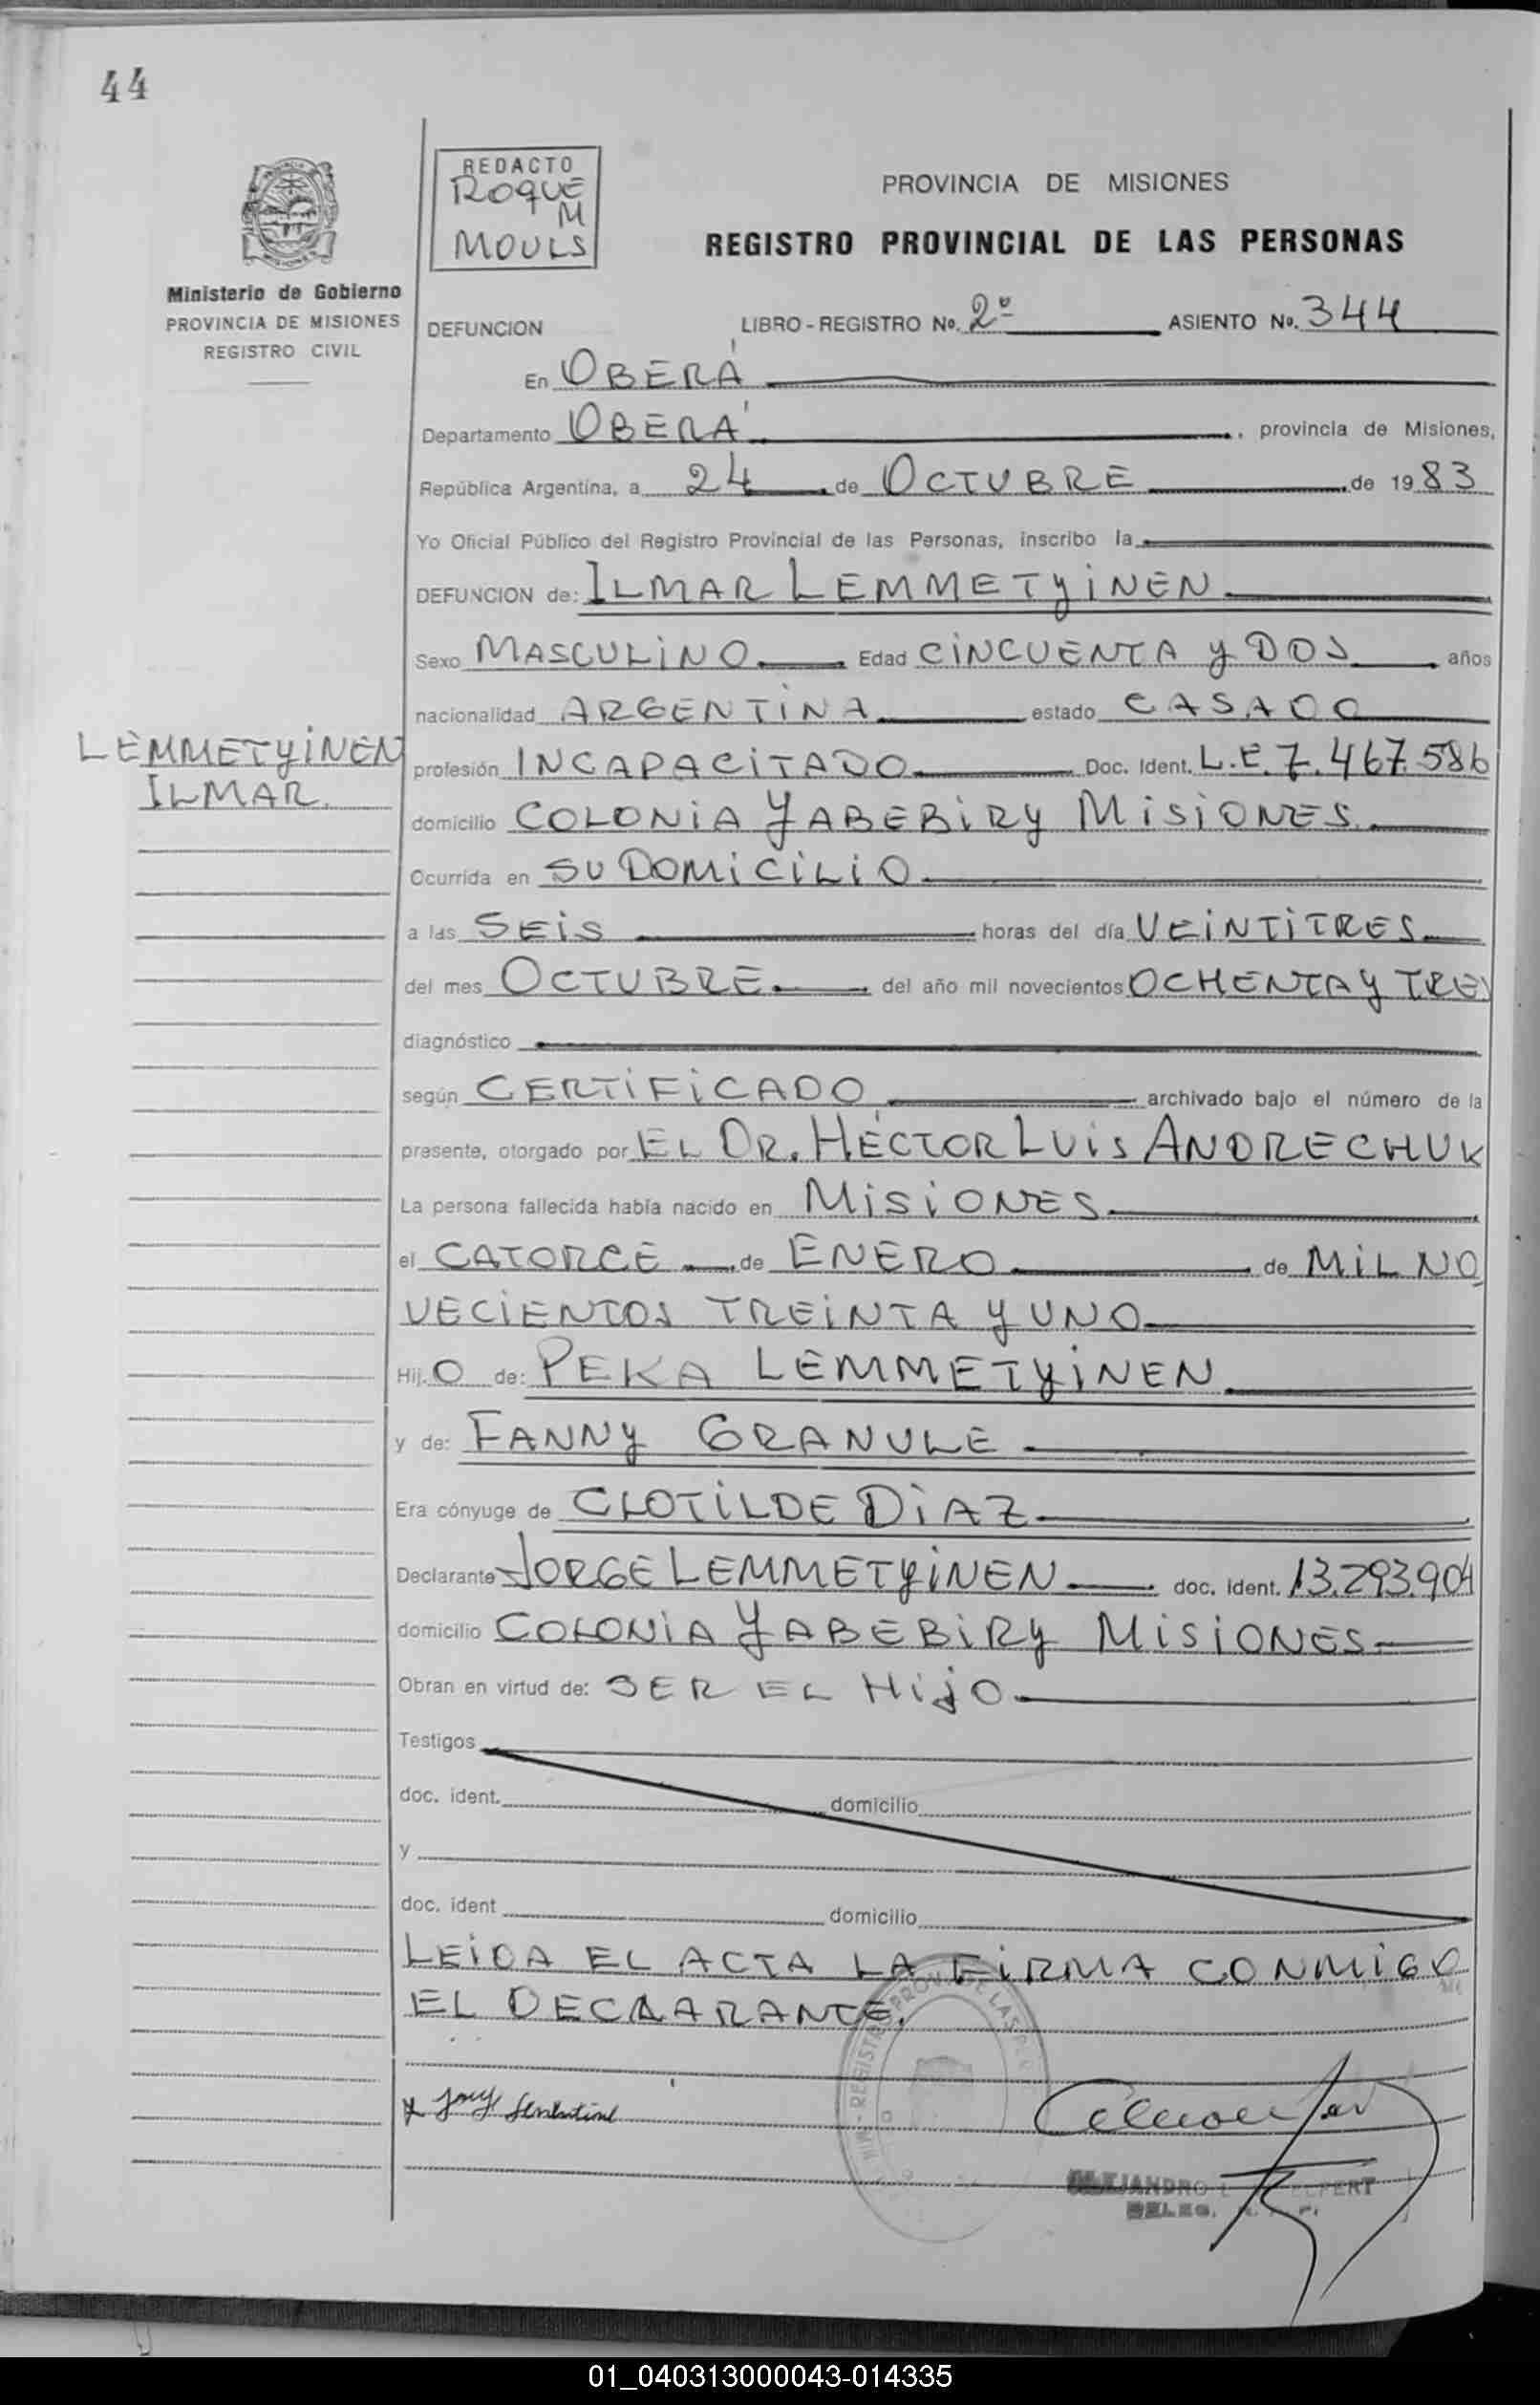 44
REDACTO
ROQUE
M
MOULS
PROVINCIA DE MISIONES
REGISTRO PROVINCIAL DE LAS PERSONAS
Ministerio de Gobierno
PROVINCIA DE MISIONES
REGISTRO CIVIL
DEFUNCION LIBRO - REGISTRO No. 2º ASIENTO No. 344
En OBERÁ
Departamento OBERÁ, provincia de Misiones,
República Argentina, a 24 de OCTUBRE de 1983
Yo Oficial Público del Registro Provincial de las Personas, inscribo la
DEFUNCION de: ILMAR LEMMETYINEN
Sexo MASCULINO Edad CINCUENTA Y DOS años
nacionalidad ARGENTINA estado CASADO
LEMMETYINEN
ILMAR.
profesión INCAPACITADO Doc. Ident. L.E. 7.467.586
domicilio COLONIA YABEBIRY MISIONES.
Ocurrida en SU DOMICILIO
a las SEIS horas del día VEINTITRES
del mes OCTUBRE del año mil novecientos OCHENTA Y TRES
diagnóstico
según CERTIFICADO archivado bajo el número de la
presente, otorgado por EL DR. HÉCTOR LUIS ANDRECHUK
La persona fallecida había nacido en MISIONES
el CATORCE de ENERO de MIL NO
VECIENTOS TREINTA Y UNO
Hij.O de: PEKA LEMMETYINEN
y de: FANNY GRANULE
Era cónyuge de CLOTILDE DIAZ
Declarante JORGE LEMMETYINEN doc. Ident. 13.293.904
domicilio COLONIA YABEBIRY MISIONES
Obran en virtud de: SER EL HIJO
Testigos
doc. ident. domicilio
y
doc. ident domicilio
LEIDA EL ACTA LA FIRMA CONMIGO
EL DECLARANTE.
ALEJANDRO
01_040313000043-014335